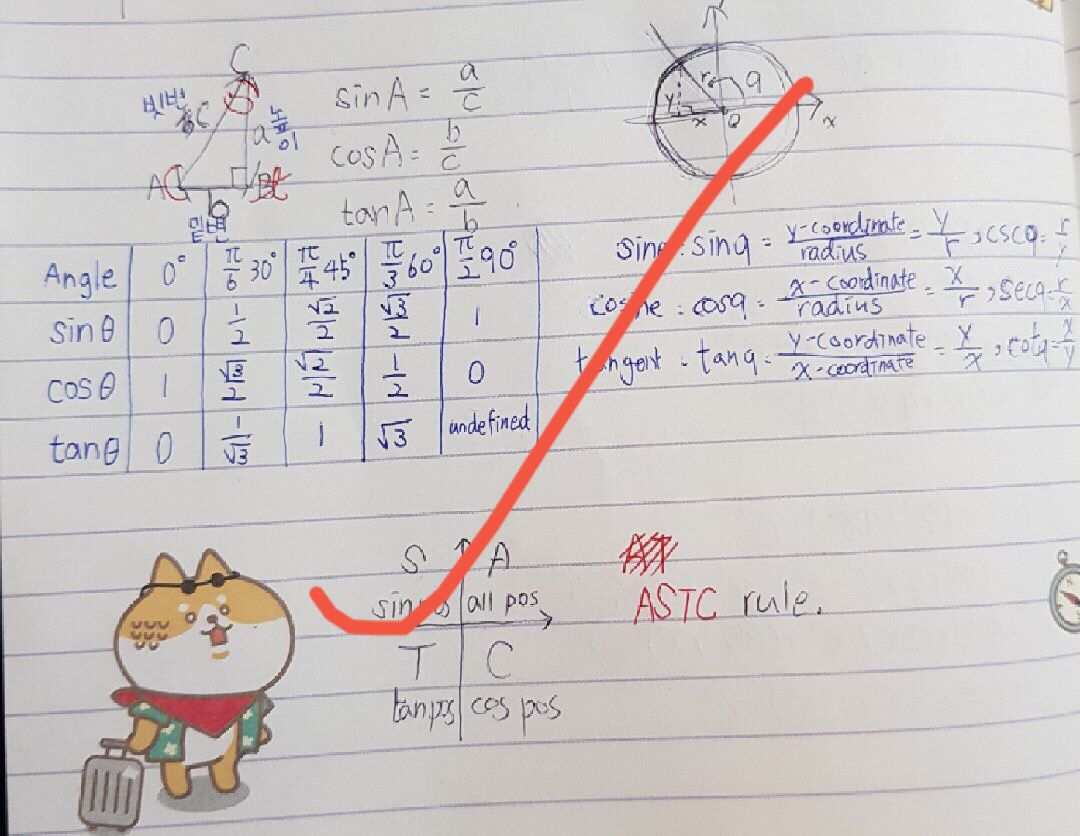 C
빗변 c
a 높이
A
B
b
밑변
sinA = a/c
cosA = b/c
tanA = a/b
r q
y
x O x
Angle 0° π/6 30° π/4 45° π/3 60° π/2 90°
sinθ 0 1/2 √2/2 √3/2 1
cosθ 1 √3/2 √2/2 1/2 0
tanθ 0 1/√3 1 √3 undefined
sine : sinq = y-coordinate/radius = y/r , cscq = r/y
cosine : cosq = x-coordinate/radius = x/r , secq = r/x
tangent : tanq = y-coordinate/x-coordinate = y/x , cotq = x/y
S A
sin pos all pos
T C
tan pos cos pos
ASTC rule.